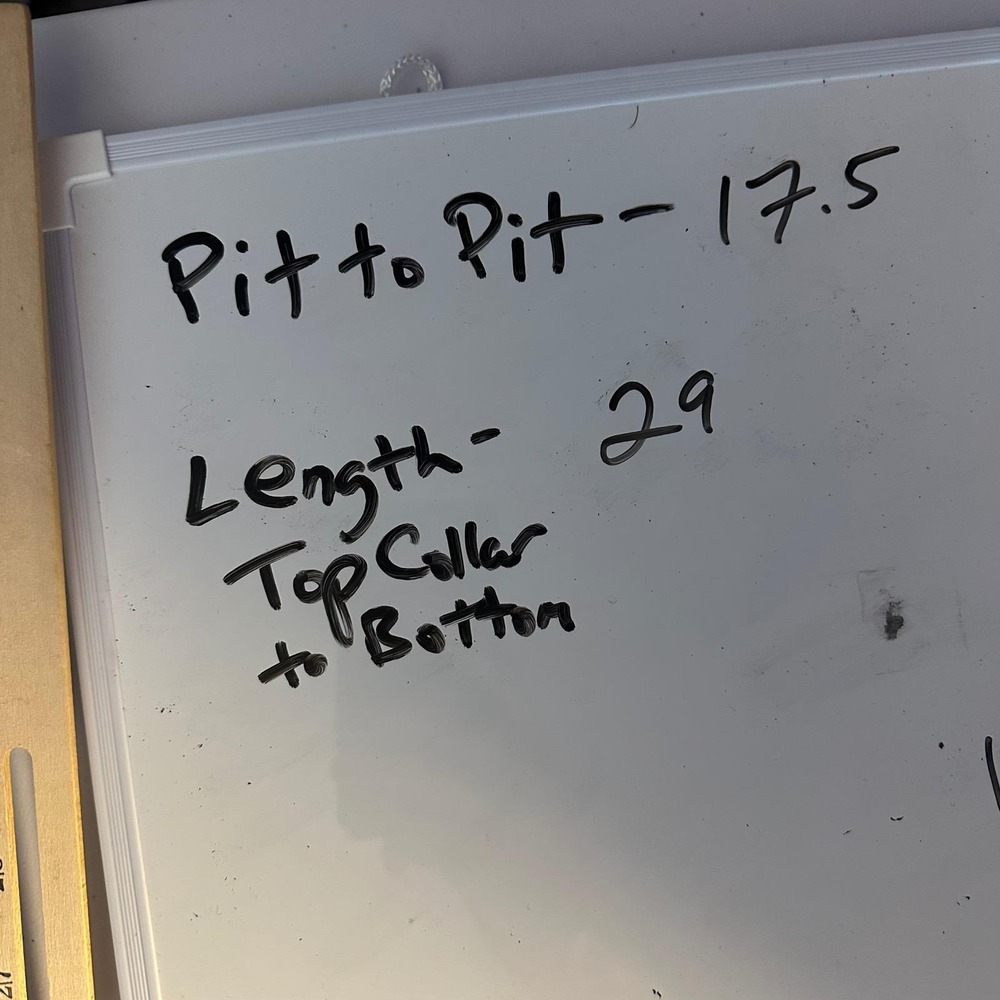 Pit to Pit - 17.5
Length - 29
Top Collar
to Bottom